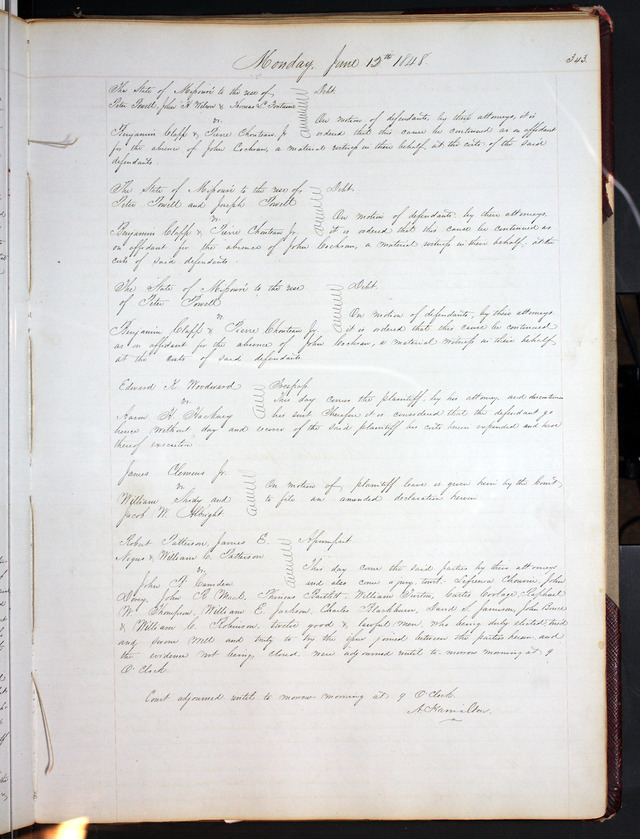 Monday, June 12th 1848. 343.
The State of Missouri to the use of Debt
Peter Powell, John F. Wilson &
vs.
On motion of defendants, by their attorneys, it is
Benjamin Clapp & Pierre Chouteau, Jr. ordered that this cause be continued as on affidavit
for the absence of John Cochran, a material witness in their behalf, at the costs of the said
defendants.
The State of Missouri to the use of Debt.
Peter Powell and Joseph Powell
vs.
On motion of defendants by their attorneys
Benjamin Clapp & Pierre Chouteau Jr. it is ordered that this cause be continued as
on affidavit for the absence of John Cochran, a material witness in their behalf, at the
costs of said defendants.
The State of Missouri to the use Debt
of Peter Powell
vs.
On motion of defendants, by their attorneys
Benjamin Clapp & Pierre Chouteau Jr. it is ordered that this cause be continued
as on affidavit for the absence of John Cochran, a material witness in their behalf,
at the costs of said defendants
Edward K. Woodward Trespass
vs.
This day comes the plaintiff, by his attorney, and discontinues
Aaron H. his suit. Therefore it is considered that the defendant go
hence without day and recover of the said plaintiff his costs herein expended and have
thereof execution
James Clemens Jr.
vs.
On motion of plaintiff leave is given him by the Court
William and to file an amended declaration herein
Jacob W. Albright
Robert Patterson, James E. Assumpsit
Negus & William C. Patterson
vs.
This day come the said parties by their attorneys
John F. Camden and also come a jury, towit: Chouvin, John
John R. Thomas Bartlett, William Burton, Curtis Raphael
W. Thompson, William E. Jackson, Charles Blackburn, David S. Jamison, John
& William C. Robinson twelve good & lawful men, who being duly elected tried
and sworn well and truly to try the issue joined between the parties herein and
the evidence not being closed were adjourned until to morrow morning at 9
O'Clock
Court adjourned until to morrow morning at 9 O'Clock.
A Hamilton